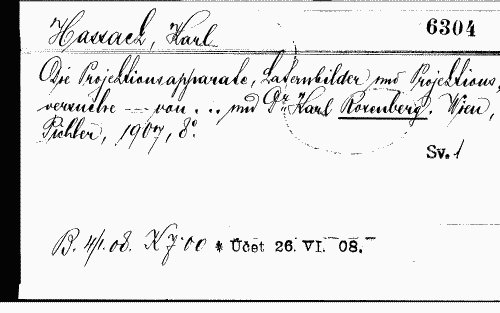 Hassack, Karl 6304
Die Projektionsapparate, Laternbilder und Projektions,
versuche --- von ... und Dr. Karl Rosenberg. Wien,
Pichler, 1907, 8°.
Sv. 1
B. 4/1. 08. K 7·00 * Účet 26. VI. 08.